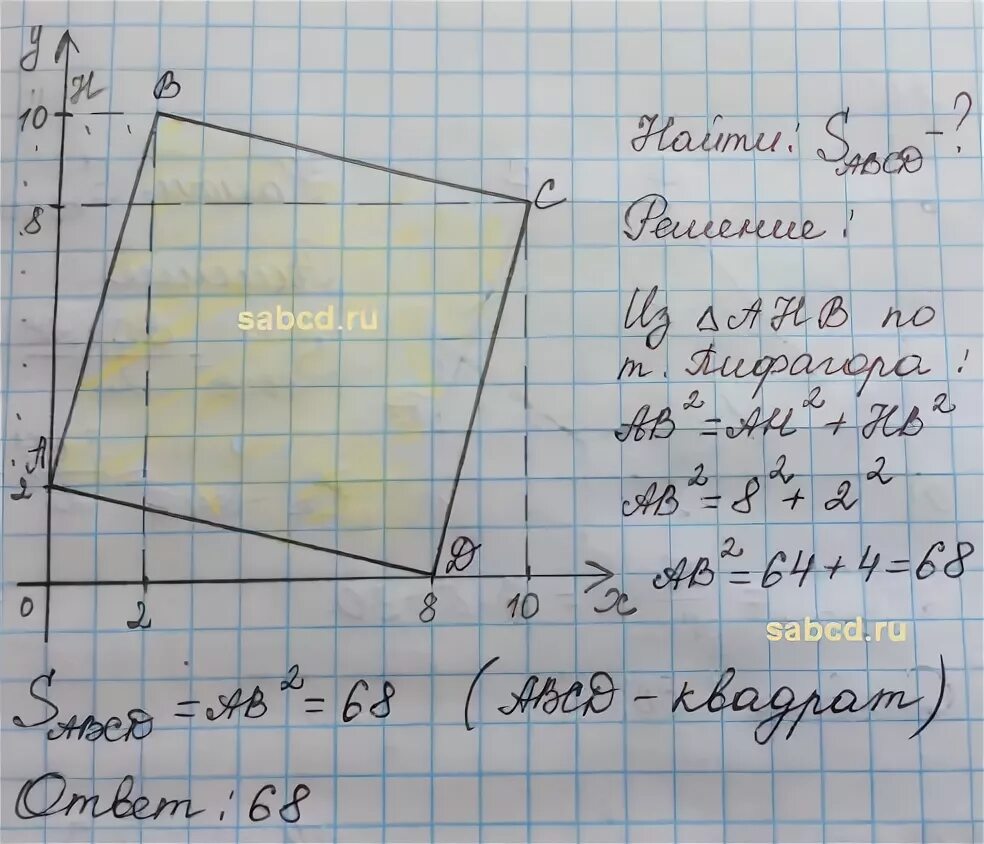 y
H
B
10
C
8
A
2
D
0
2
8
10
x
sabcd.ru
Найти: S ABCD - ?
Решение:
Из △ AHB по
т. Пифагора:
AB² = AH² + HB²
AB² = 8² + 2²
AB² = 64 + 4 = 68
sabcd.ru
S ABCD = AB² = 68 (ABCD - квадрат)
Ответ: 68